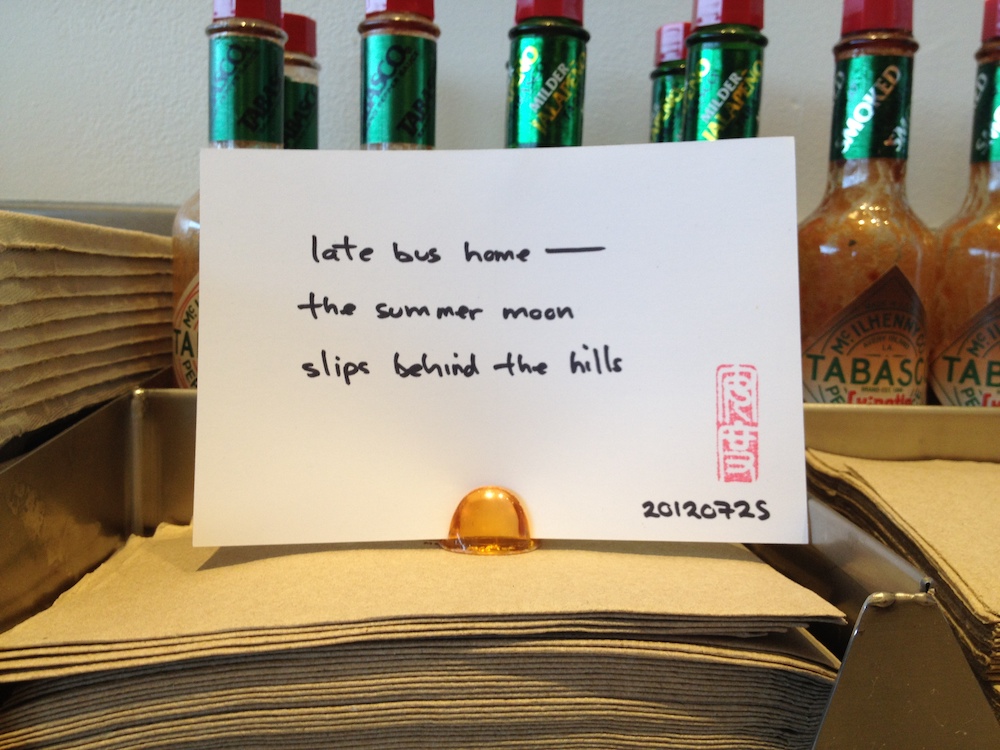 TABASCO
TABASCO
MILDER
JALAPEÑO
MILDER
JALAPEÑO
SMOKED
late bus home —
the summer moon
slips behind the hills
20120725
McILHENNY CO
TABASC
Chipotle
TAB